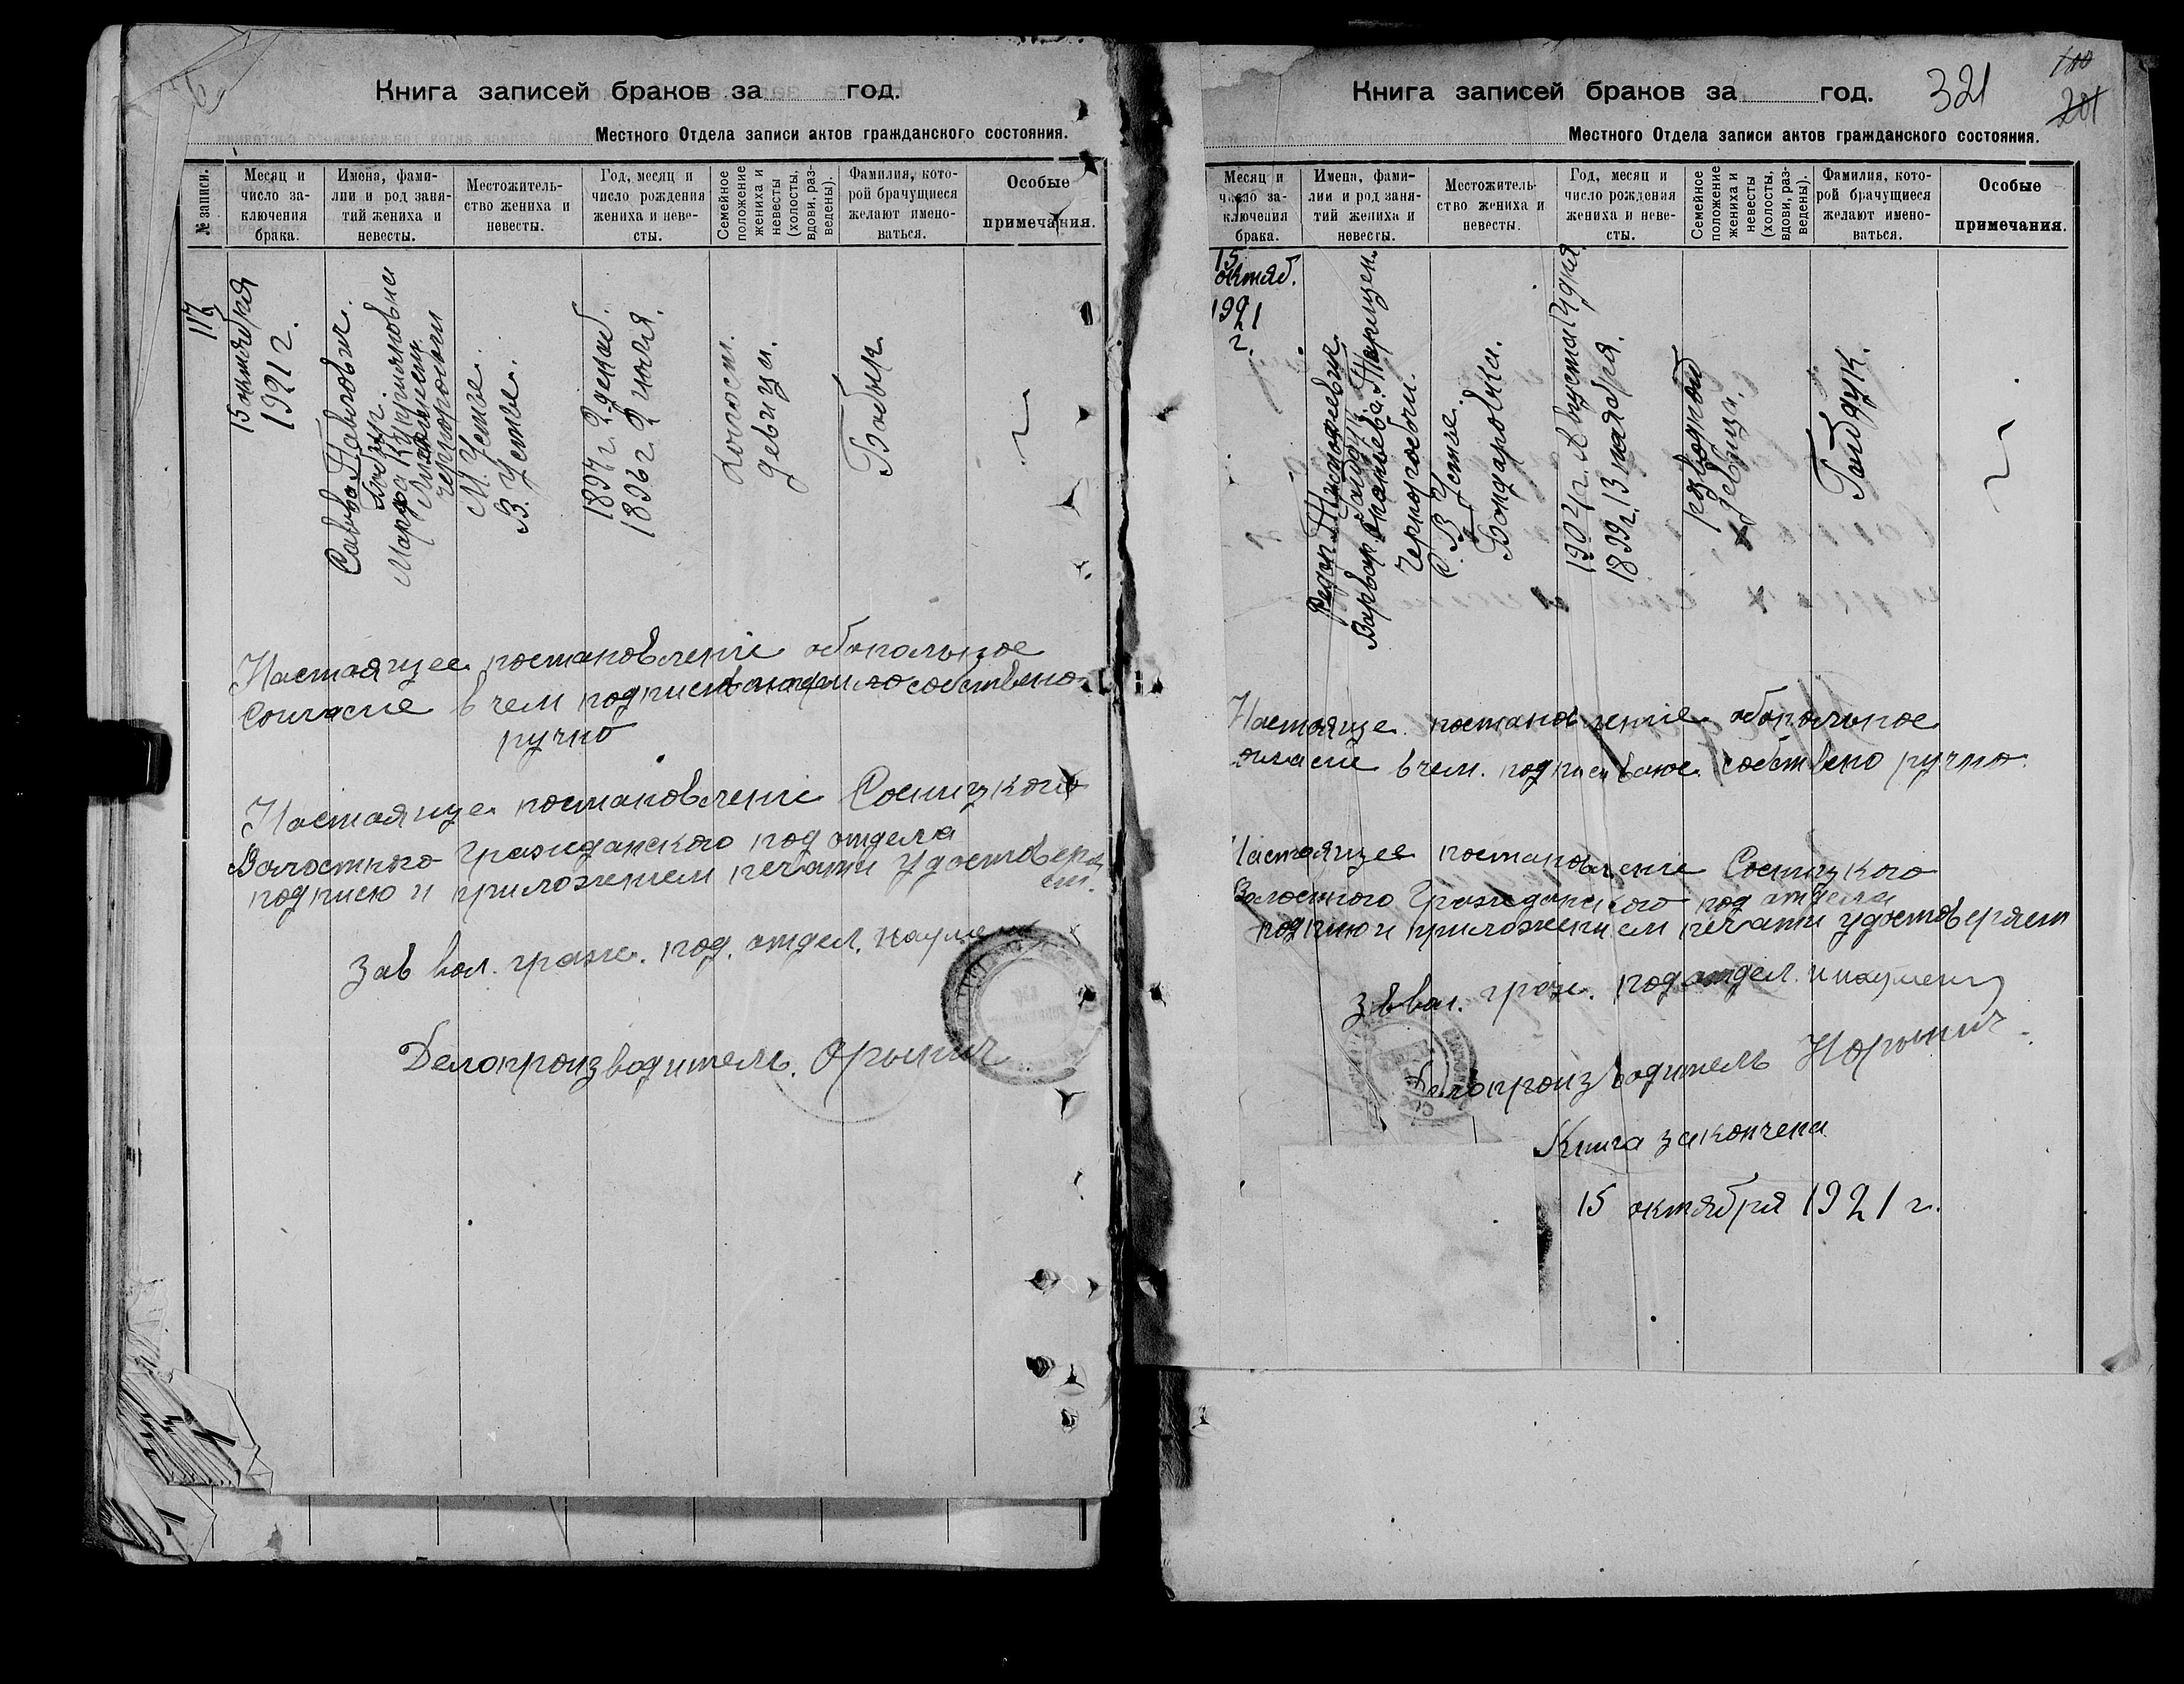 Книга записей браков за год.
Местного Отдела записи актов гражданского состояния.
№ записи.
Месяц и число заключения брака.
Имена, фамилии и род занятий жениха и невесты.
Местожительство жениха и невесты.
Год, месяц и число рождения жениха и невесты.
Семейное положение жениха и невесты (холосты, вдовы, разведены).
Фамилия, которой брачущиеся желают именоваться.
Особые примечания.
117
15 октября
1921 г.
Савва Павлович
Марфа
М. Устье.
В. Устье.
1897 г. 2 декаб.
1896 г. 2 июля.
Холост.
девица.
Бабык
Настоящее постановление обопольное
согласие в чем подписиваем собствено
ручно
Настояще постановление Сосницкого
Волостного Гражданского под отдела
подписю и приложением печати удостоверя
ет.
Зав вол. граж. под. отдел. Наумен
Делопроизводитель.
Книга записей браков за год.
321
100
201
Местного Отдела записи актов гражданского состояния.
Месяц и число заключения брака.
Имена, фамилии и род занятий жениха и невесты.
Местожительство жениха и невесты.
Год, месяц и число рождения жениха и невесты.
Семейное положение жениха и невесты (холосты, вдовы, разведены).
Фамилия, которой брачущиеся желают именоваться.
Особые примечания.
15
октяб.
1921
г.
Гайдук
Варвар
С. В Устье.
Бондаровка.
1899 г. 13 наября.
розводной
девица.
Гайдук.
Настояще постановление обопольное
согласие в чем подписиваюс собствено ручно
Настоящее постановление Сосницкого
Волостного Гражданского под отдела
подпию и приложением печати удостоверяет
Зввол. граж. под отдел. Наумен
Делопроизводитель
Книга закончена
15 октября 1921 г.